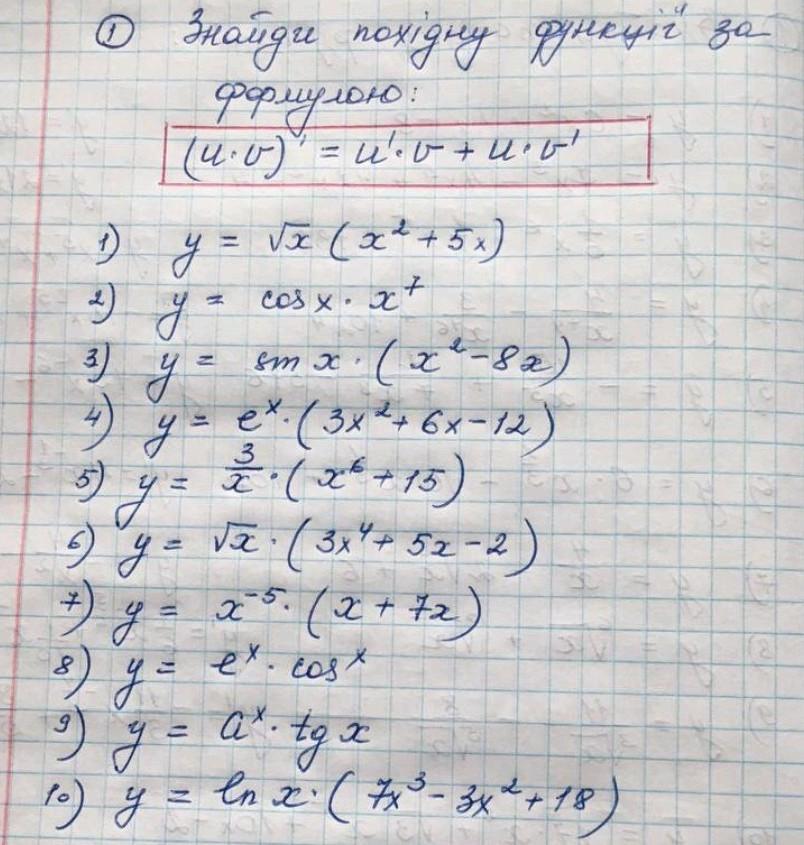 ① Знайди похідну функції за
формулою:
(u·v)' = u'·v + u·v'
1) y = √x (x² + 5x)
2) y = cos x · x⁷
3) y = sin x · (x² - 8x)
4) y = eˣ · (3x² + 6x - 12)
5) y = 3/x · (x⁶ + 15)
6) y = √x · (3x⁴ + 5x - 2)
7) y = x⁻⁵ · (x + 7x)
8) y = eˣ · cosˣ
9) y = aˣ · tg x
10) y = ln x · (7x³ - 3x² + 18)